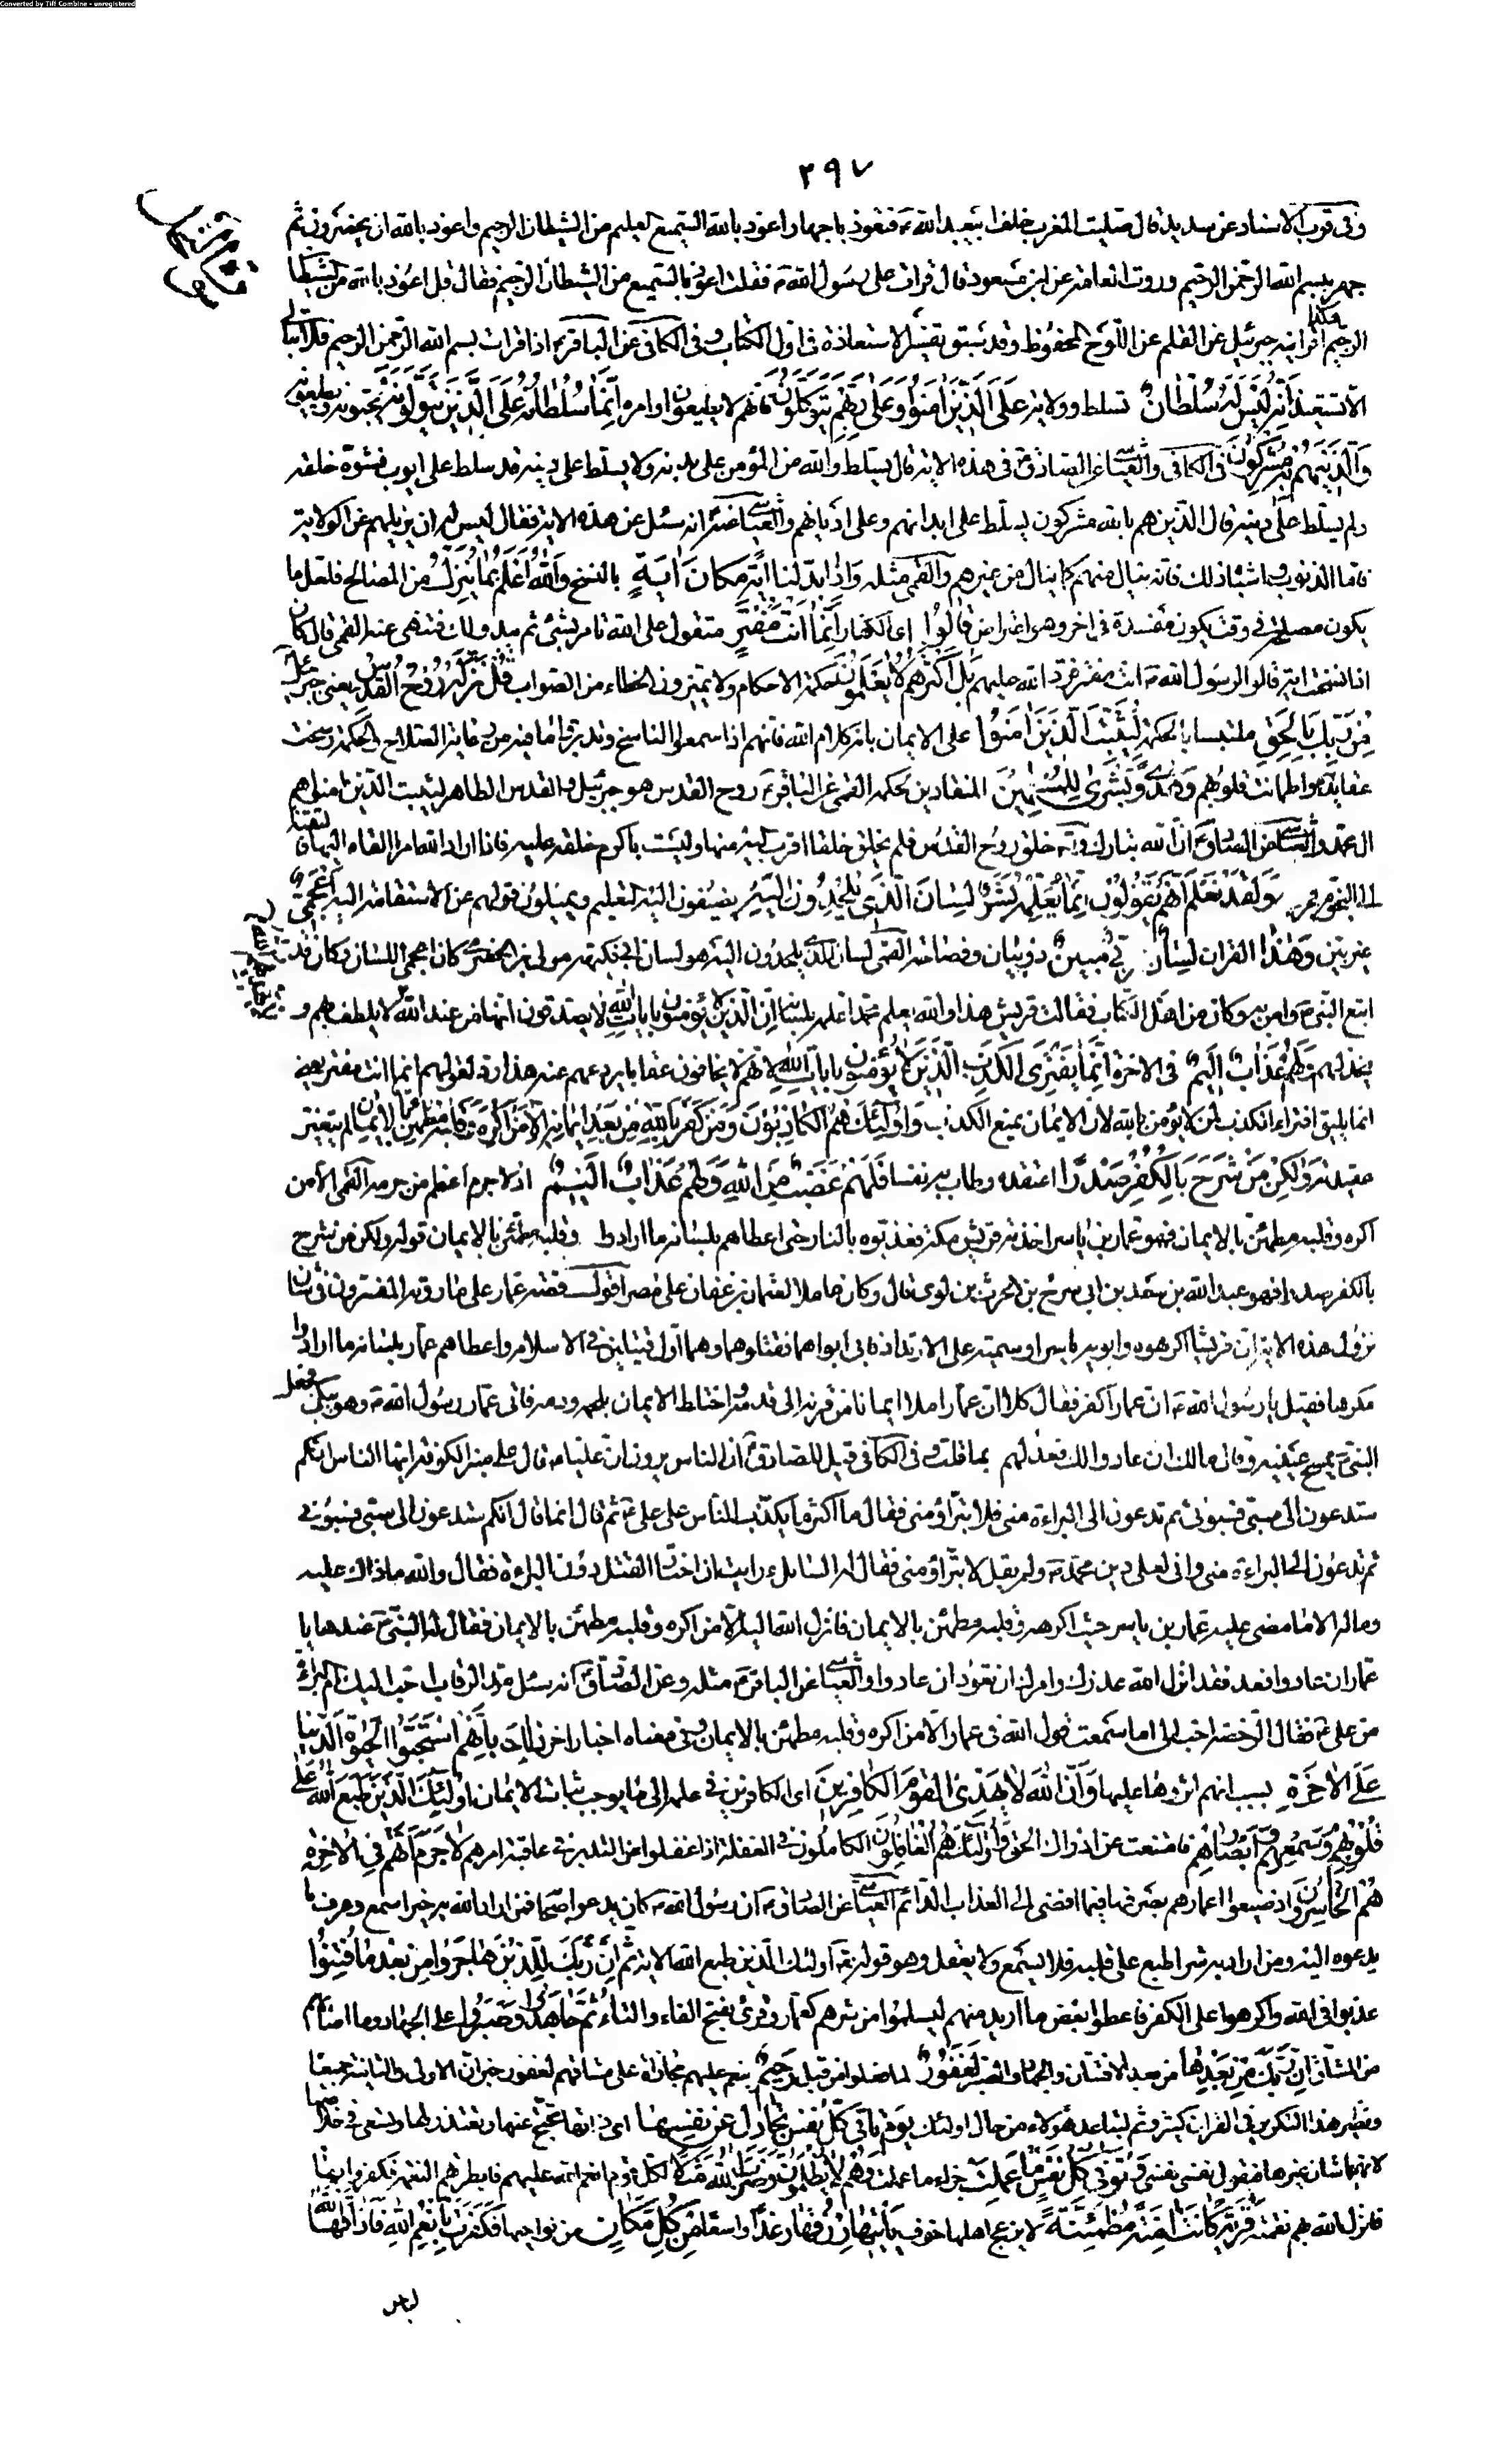 Converted by Tiff Combine - unregistered
٢٩٧
وفى قرب الاسناد عن سدير قال صليت المغرب خلف ابيعبد الله ع فتعوذ باجهار اعوذ بالله السميع العليم من الشيطان الرجيم واعوذ بالله ان يحضرون ثم
جهر ببسم الله الرحمن الرحيم وروت العامة عن ابن مسعود قال قرات على رسول الله ص فقلت اعوذ بالسميع من الشيطان الرجيم فقال قل اعوذ بالله من الشيطان
الرجيم هكذا اقرانيه جبرئيل عن القلم عن اللوح المحفوظ وقد سبق تفسير الاستعاذة فى اول الكتاب وفى الكافى عن الباقر ع اذا قرات بسم الله الرحمن الرحيم فلا تبالى
الا تستعيذ انه ليس له سلطان تسلط وولاية على الذين امنوا وعلى ربهم يتوكلون فانهم لا يطيعون اوامره انما سلطانه على الذين يتولونه يحبونه ويطيعونه
والذين هم به مشركون فى الكافى والعياشى عن الصادق ع فى هذه الاية قال يسلط والله من المؤمن على بدنه ولا يسلط على دينه قد سلط على ايوب فشوه خلقه
ولم يسلط على دينه قال الذين هم بالله مشركون يسلط على ابدانهم وعلى اديانهم والعياشى عنه ع انه سئل عن هذه الاية فقال ليس له ان يزيلهم عن الولاية
فاما الذنوب واشباه ذلك فانه ينال منهم كما ينال من غيرهم والقمى مثله واذا بدلنا اية مكان اية بالنسخ والله اعلم بما ينزل من المصالح فلعل ما
يكون مصلحة فى وقت يكون مفسدة فى اخر وهو اعتراض قالوا اى الكفار انما انت مفتر متقول على الله تامر بشىء ثم يبدو لك فتنهى عنه القمى قال كان
اذا نسخت اية قالوا لرسول الله ص انت مفتر فرد الله عليهم بل اكثرهم لا يعلمون حكمة الاحكام ولا يميزون الخطاء من الصواب قل نزله روح القدس يعنى جبرئيل
من ربك بالحق ملتبسا بالحكمة ليثبت الذين امنوا على الايمان بانه كلام الله فانهم اذا سمعوا الناسخ وتدبروا ما فيه من رعاية الصلاح والحكمة رسخت
عقايدهم واطمانت قلوبهم وهدى وبشرى للمسلمين المنقادين لحكمه القمى عن الباقر ع روح القدس هو جبرئيل والقدس الطاهر ليثبت الذين امنوا هم
ال محمد والعياشى عن الصادق ع ان الله تبارك وتعالى خلق روح القدس فلم يخلق خلقا اقرب اليه منها وليست باكرم خلقه عليه فاذا اراد الله امرا القاه اليها فالقته
الى النجوم فجرت به ولقد نعلم انهم يقولون انما يعلمه بشر لسان الذى يلحدون اليه يضيفون اليه التعليم ويميلون قولهم عن الاستقامة اليه اعجمى
غير بين وهذا القران لسان عربى مبين ذو بيان وفصاحة القمى لسان الذى يلحدون اليه هو لسان ابى فكيهة مولى بنى الحضرمى كان اعجمى اللسان وكان قد
اتبع النبى ص وامن به وكان من اهل الكتاب فقالت قريش هذا والله يعلم محمدا علمه بلسانه ان الذين لا يؤمنون بايات الله لا يصدقون انها من عند الله لا يلطف بهم و
يخذلهم ولهم عذاب اليم فى الاخرة انما يفترى الكذب الذين لا يؤمنون بايات الله لانهم لا يخافون عقابا يردعهم عنه هذا رد لقولهم انما انت مفتر يعنى
انما يليق افتراء الكذب لمن لا يؤمن بالله لان الايمان يمنع الكذب واولئك هم الكاذبون ومن كفر بالله من بعد ايمانه الا من اكره وقلبه مطمئن بالايمان لم يتغير
عقيدته ولكن من شرح بالكفر صدرا اعتقده وطاب به نفسا فعليهم غضب من الله ولهم عذاب اليم اذ لا جرم اعظم من جرمه القمى الا من
اكره وقلبه مطمئن بالايمان فهو عمار بن ياسر اخذته قريش بمكة فعذبوه بالنار حتى اعطاهم بلسانه ما ارادوا وقلبه مطمئن بالايمان قوله ولكن من شرح
بالكفر صدرا فهو عبد الله بن سعد بن ابى سرح بن الحرث بن لوى قال وكان عاملا لعثمان بن عفان على مصر اقول قصة عمار على ما روته المفسرون فى شان
نزول هذه الاية ان قريشا اكرهوه وابويه ياسرا وسمية على الارتداد فابى ابواهما فقتلوهما وهما اول قتيلين فى الاسلام واعطاهم عمار بلسانه ما ارادوا
مكرها فقيل يا رسول الله ص ان عمارا كفر فقال كلا ان عمارا ملأ ايمانا من قرنه الى قدمه واختلط الايمان بلحمه ودمه فاتى عمار رسول الله ص وهو يبكى فجعل
النبى ص يمسح عينيه وقال مالك ان عادوا لك فعد لهم بما قلت وفى الكافى قيل للصادق ع ان الناس يروون ان عليا ع قال على منبر الكوفة ايها الناس انكم
ستدعون الى سبى فسبونى ثم تدعون الى البراءة منى فلا تبرأوا منى فقال ما اكثر ما يكذب الناس على على ع ثم قال انما قال انكم ستدعون الى سبى فسبونى
ثم تدعون الى البراءة منى وانى لعلى دين محمد ص ولم يقل لا تبرأوا منى فقال له السائل ارايت ان اختار القتل دون البراءة فقال والله ما ذاك عليه
وما له الا ما مضى عليه عمار بن ياسر حيث اكرهه وقلبه مطمئن بالايمان فانزل الله اليه الا من اكره وقلبه مطمئن بالايمان فقال له النبى ص عندها يا
عمار ان عادوا فعد فقد انزل الله عذرك وامرك ان تعود ان عادوا والعياشى عن الباقر ع مثله وعن الصادق ع انه سئل مد الرقاب احب اليك ام البراءة
من على ع فقال الرخصة احب الى اما سمعت قول الله فى عمار الا من اكره وقلبه مطمئن بالايمان وفى معناه اخبار اخر ذلك بانهم استحبوا الحيوة الدنيا
على الاخرة بسبب انهم اثروها عليها وان الله لا يهدى القوم الكافرين اى الكافرين فى علمه الى ما يوجب ثبات الايمان اولئك الذين طبع الله على
قلوبهم وسمعهم وابصارهم فامتنعت عن ادراك الحق واولئك هم الغافلون الكاملون فى الغفلة اذ اغفلوا عن التدبر فى عاقبة امرهم لا جرم انهم فى الاخرة
هم الخاسرون اذ ضيعوا اعمارهم بصرفها فيما افضى الى العذاب الدائم العياشى عن الصادق ع ان رسول الله ص كان يدعو اصحابه فمن اراد الله به خيرا سمع وعرف ما
يدعوه اليه ومن اراد به شرا طبع على قلبه فلا يسمع ولا يعقل وهو قوله تعالى اولئك الذين طبع الله الاية ثم ان ربك للذين هاجروا من بعد ما فتنوا
عذبوا فى الله واكرهوا على الكفر فاعطوا بعض ما اريد منهم ليسلموا من شرهم كعمار وقرئ بفتح الفاء والتاء ثم جاهدوا وصبروا على الجهاد وما اصابهم
من المشاق ان ربك من بعدها من بعد الافتتان والجهاد والصبر لغفور لما فعلوا من قبل رحيم ينعم عليهم مجازاة على مشاقهم لغفور خبر ان الاولى والثانية جميعا
ونظير هذا التكرير فى القران كثير وثم لتباعد هؤلاء من حال اولئك يوم تاتى كل نفس تجادل عن نفسها اى ذاتها تحتج عنها وتعتذر لها وتسعى فى خلاصها
لا يهمها شان غيرها فيقول نفسى نفسى وتوفى كل نفس ما عملت جزاء ما عملت وهم لا يظلمون وضرب الله مثلا لكل قوم انعم الله عليهم فابطرهم النعمة فكفروا بها
فانزل الله بهم نقمته قرية كانت امنة مطمئنة لا يزعج اهلها خوف ياتيها رزقها رغدا واسعا من كل مكان من نواحيها فكفرت بانعم الله فاذاقها الله
لباس